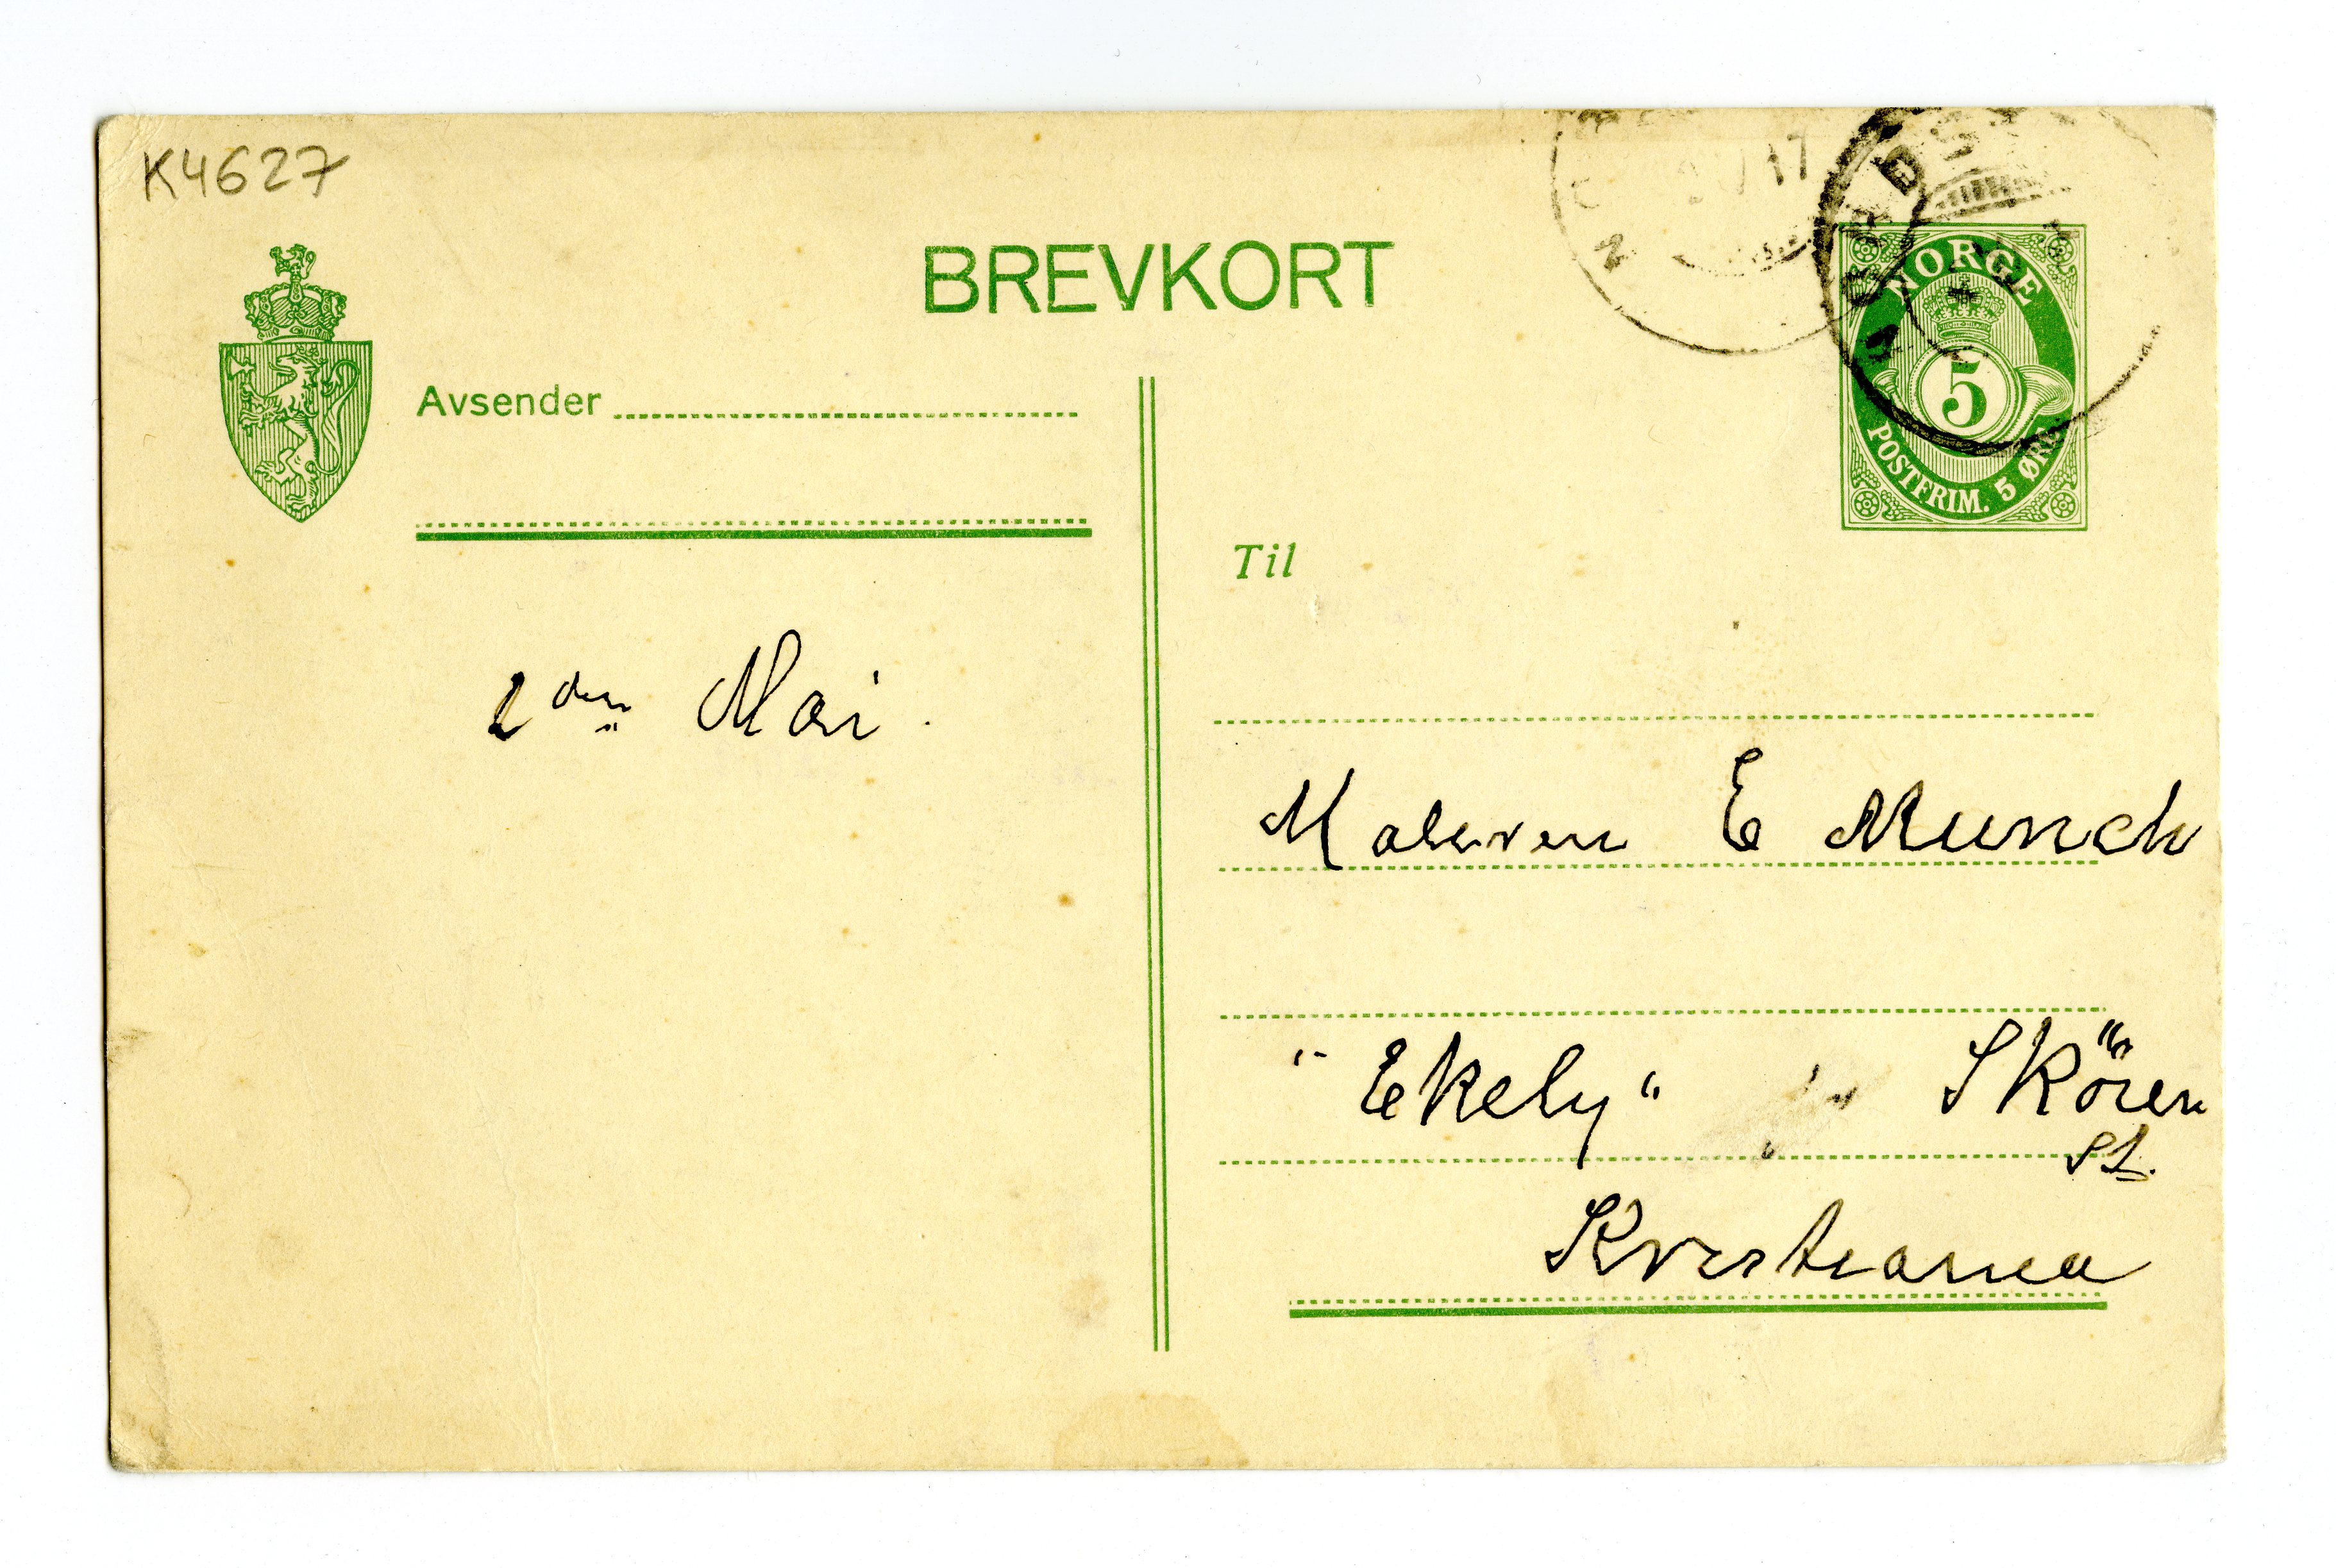 K4627
BREVKORT
17
NORGE
5
POSTFRIM. 5 ØRE
Avsender
Til
2den Mai.
Maleren E Munch
"Ekely" Skören
St.
Kristiania